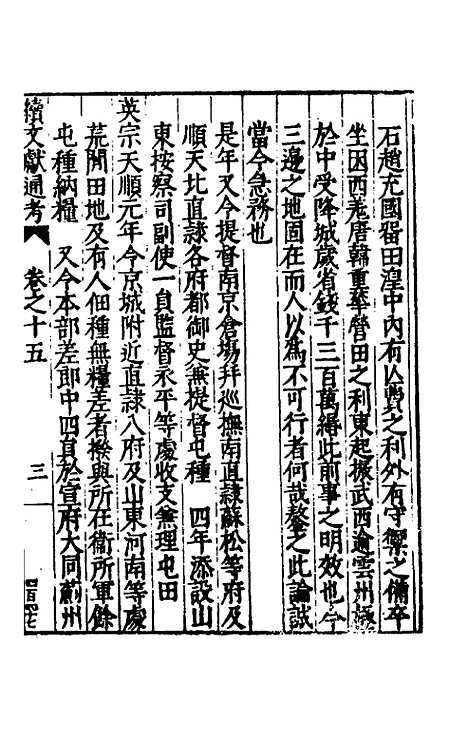 石趙充國畱田湟中內有亾費之利外有守禦之備卒
坐困西羌唐韓重華營田之利東起振武西逾雲州極
於中受降城歲省錢千三百萬緡此前事之明效也今
三邊之地固在而人以為不可行者何哉鏊之此論誠
當今急務也
是年又令提督南京倉場并巡撫南直隷蘇松等府及
順天比直隷各府都御史兼提督屯種　四年添設山
東按察司副使一自監督永平等處收支兼理屯田
英宗天順元年令京城附近直隷八府及山東河南等處
荒閒田地及有人佃種無糧差者撥與所在衞所軍餘
屯種納糧　又令本部差郎中四員於宣府大同薊州
續文獻通考　卷之十五　三